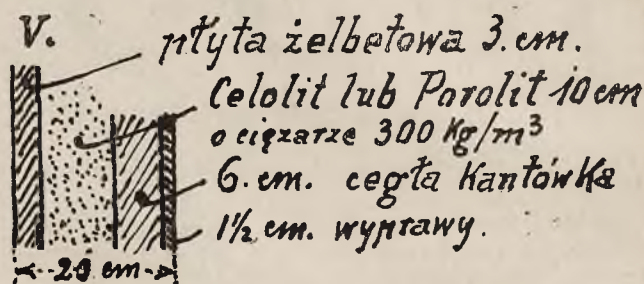 V.
płyta żelbetowa 3. cm.
Celolit lub Porolit 10 cm
o ciężarze 300 Kg/m³
6. cm. cegła Kantówka
1½ cm. wyprawy.
20 cm